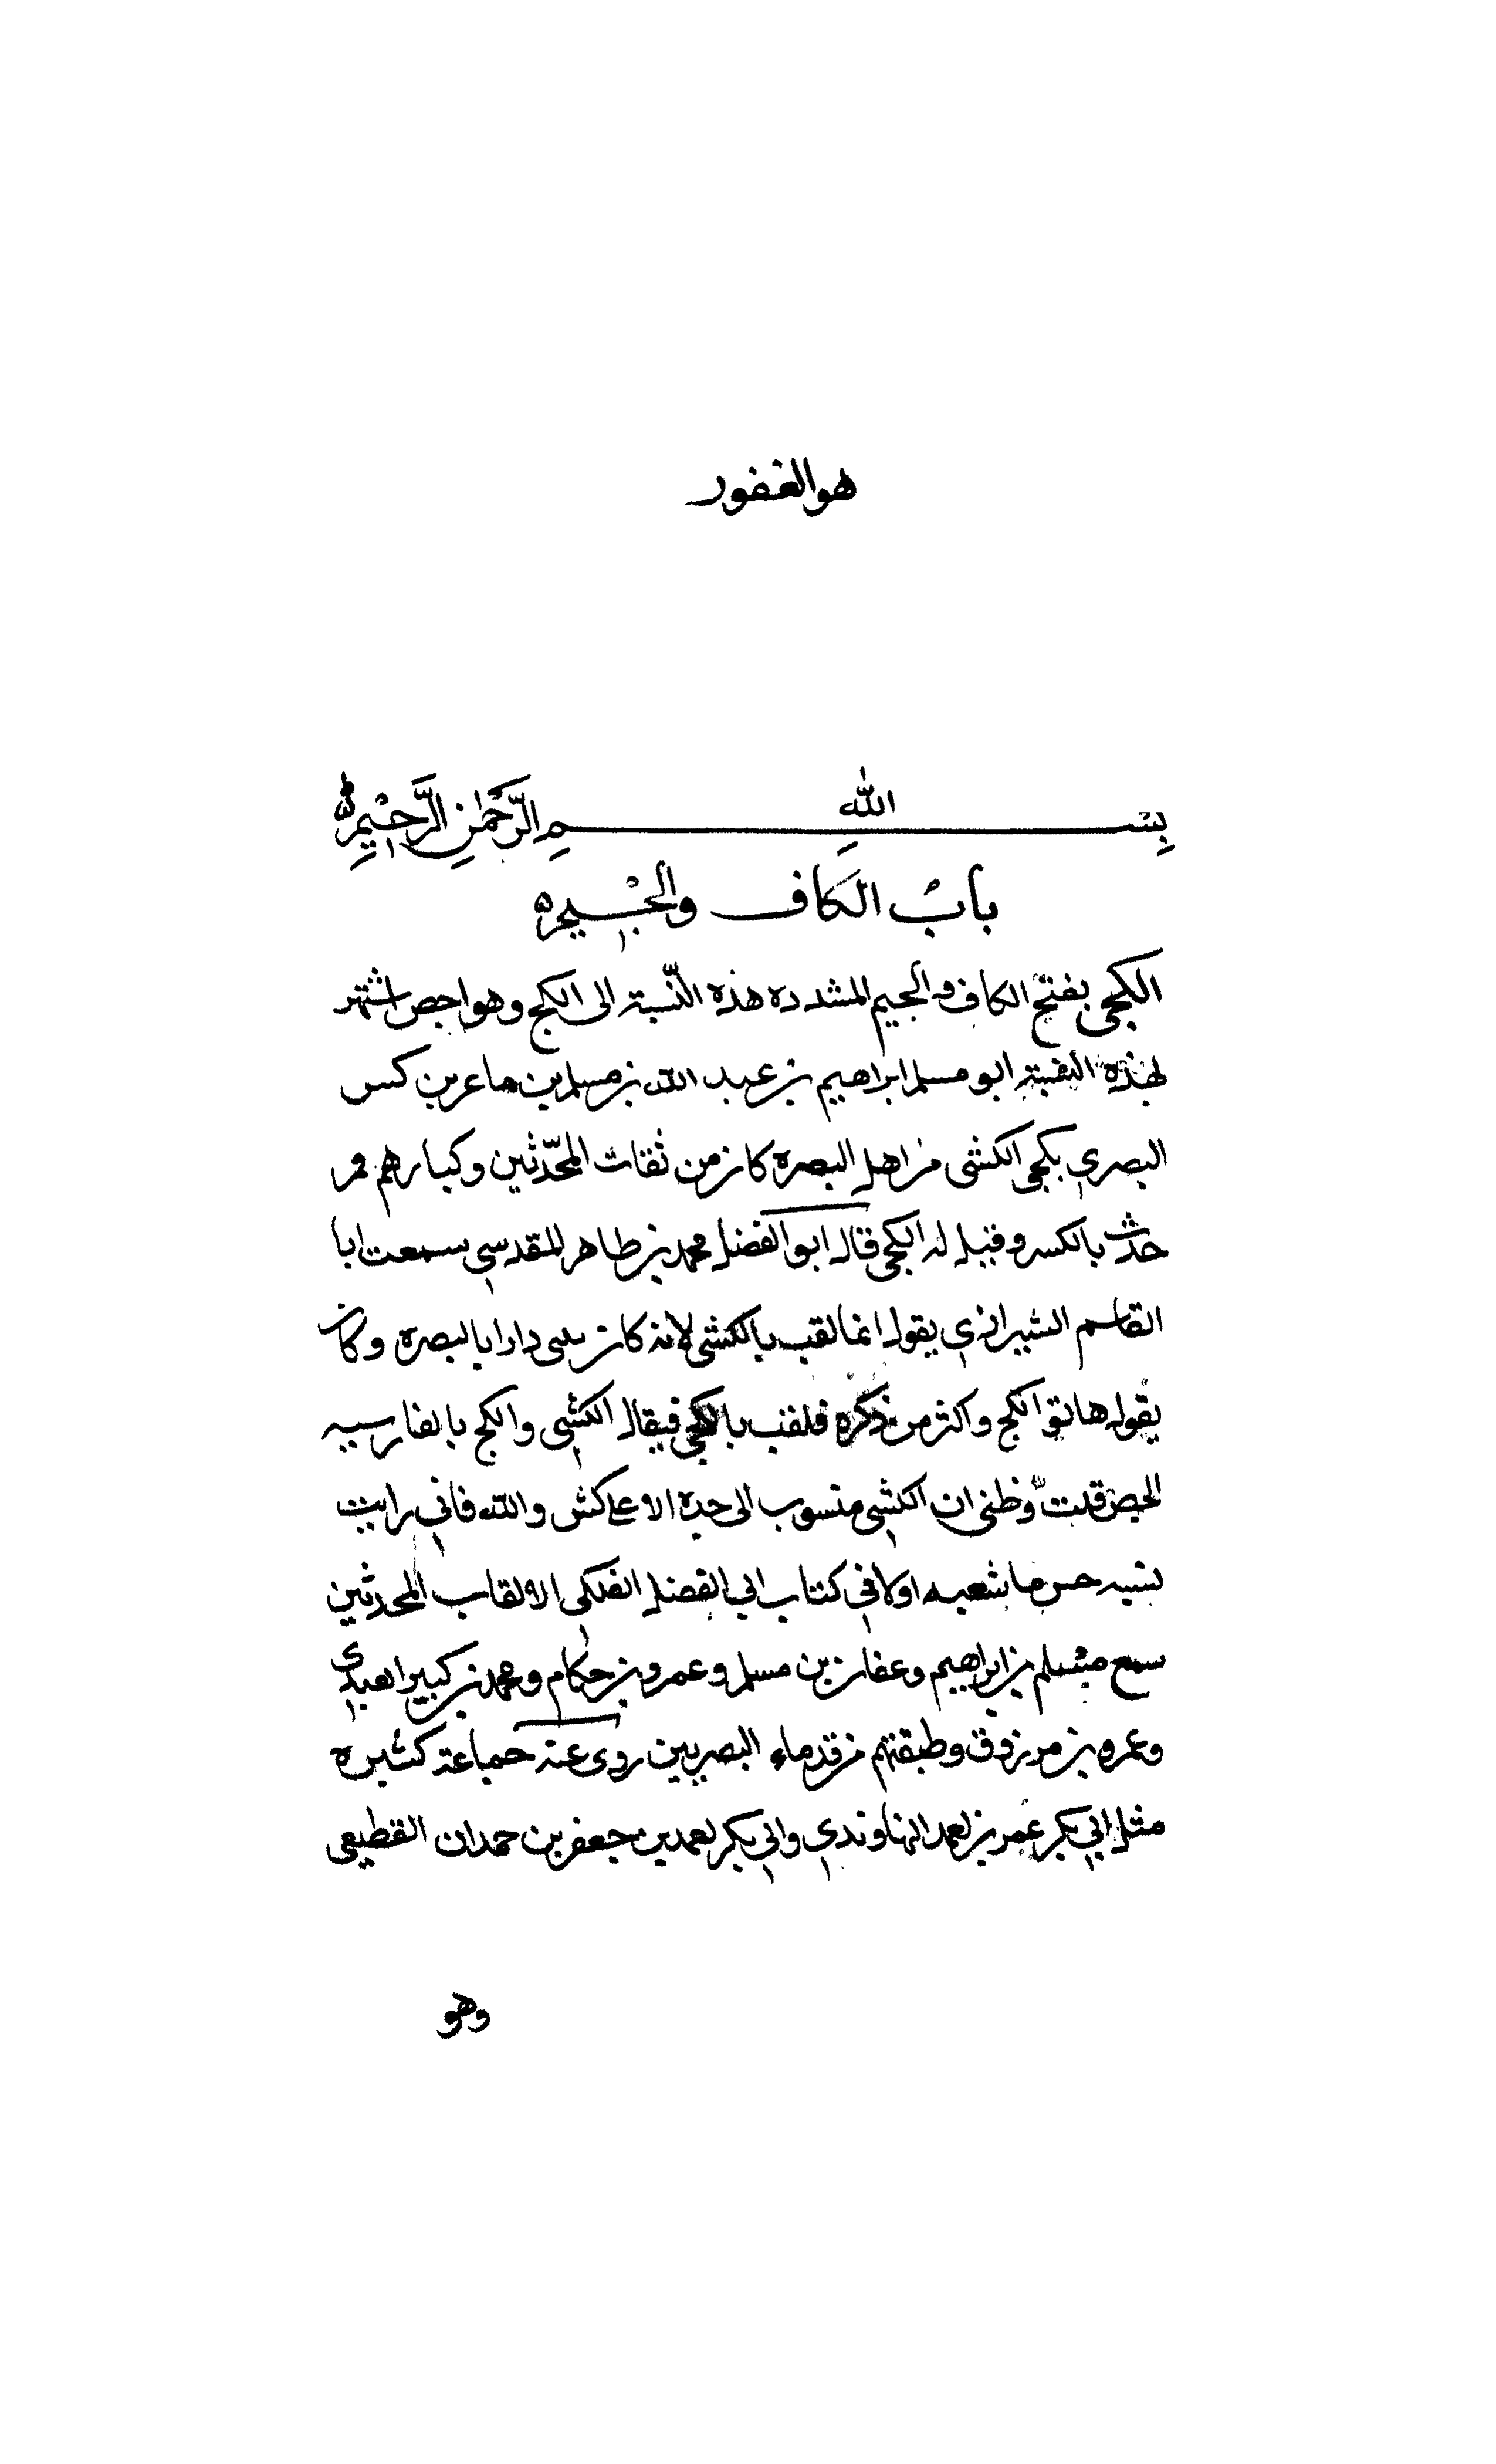 هو الغفور
بسم الله الرحمن الرحيم
باب الكاف والجيم
الكجي بفتح الكاف والجيم المشدده هذه النسبة الى الكج وهو اجص اشتهر
لهذه النسبة ابو مسلم ابراهيم بن عبد الله بن مسلم بن ماعز بن كس
البصري بكجي الكشي من اهل البصره كان من ثقات المحدثين وكبارهم
حدث بالكسر و قيل له الكجي قال ابو الفضل محمد بن طاهر المقدسي سمعت ابا
القاسم الشيرازي يقول انما لقب بالكشي لانه كان بنى دارا بالبصره وكان
يقول هاتوا الكج واكثر من ذكره فلقب بالكجي فيقال الكشي والكج بالفارسيه
الجص قلت وظني ان الكشي منسوب الى جده الاعلى كش والله فاني رايت
اولا في كتاب ابي الفضل الفلكي الالقاب المحدثين
سمع مسلم بن ابراهيم وعفان بن مسلم وعمرو بن حكام ومحمد بن كبير العبدي
وعمرو بن مرزوق وطبقتهم من قدماء البصريين روى عنه جماعة كثيره
مثل ابي بكر عمر بن احمد النهاوندي وابي بكر احمد بن جعفر بن حمدان القطيعي
وهو